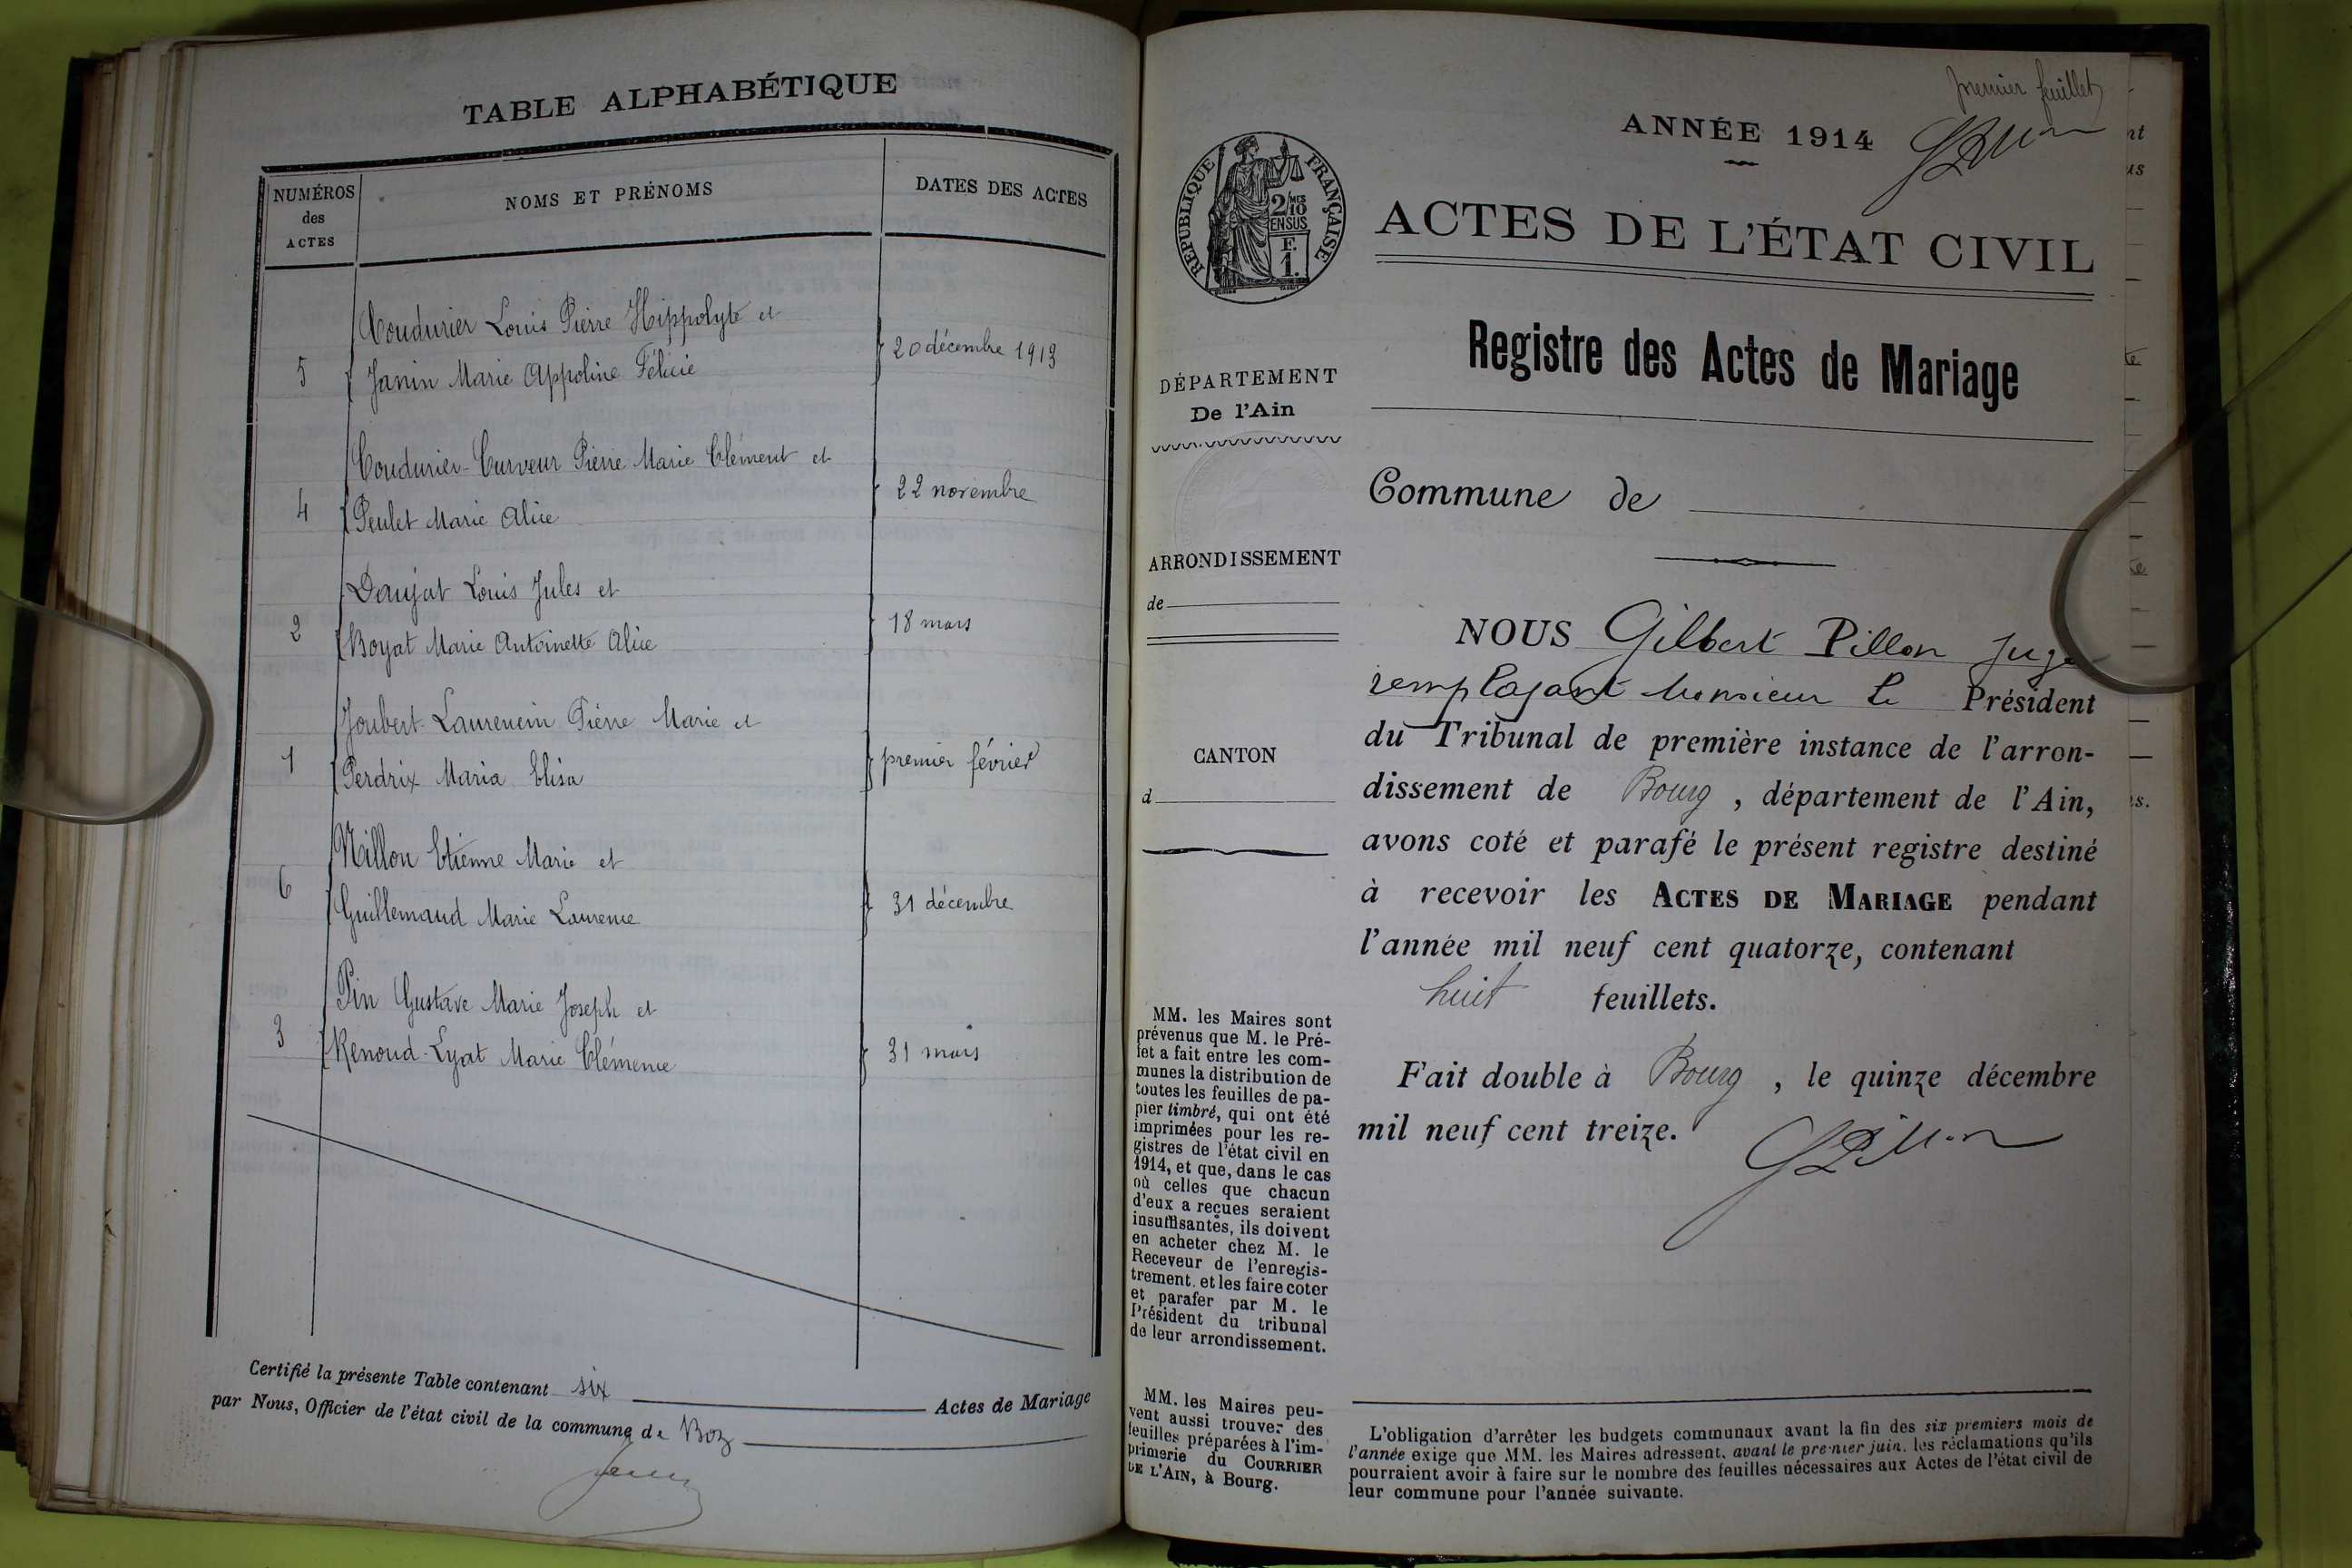 TABLE ALPHABÉTIQUE
NUMÉROS
des
ACTES
NOMS ET PRÉNOMS
DATES DES ACTES
Coudurier Louis Pierre Hippolyte et
5 Janin Marie Appoline Félicie
20 décembre 1913
Coudurier-Curveur Pierre Marie Clément et
4 Peulet Marie Alice
22 novembre
Daujat Louis Jules et
2 Boyat Marie Antoinette Alice
18 mars
Joubert-Laurencin Pierre Marie et
1 Perdrix Maria Elisa
premier février
Millon Etienne Marie et
6 Guillemaud Marie Laurence
31 décembre
Pin Gustave Marie Joseph et
3 Renoud-Lyat Marie Clémence
31 mars
Certifié la présente Table contenant six Actes de Mariage
par Nous, Officier de l'état civil de la commune de Boz
premier feuillet
ANNÉE 1914
GPillon
RÉPUBLIQUE FRANÇAISE
2/10
MES
EN SUS
F.
1.
ACTES DE L'ÉTAT CIVIL
Registre des Actes de Mariage
DÉPARTEMENT
De l'Ain
Commune de
ARRONDISSEMENT
de
CANTON
d
NOUS Gilbert Pillon Juge
remplaçant Monsieur le Président
du Tribunal de première instance de l'arron-
dissement de Bourg, département de l'Ain,
avons coté et parafé le présent registre destiné
à recevoir les ACTES DE MARIAGE pendant
l'année mil neuf cent quatorze, contenant
huit feuillets.
Fait double à Bourg, le quinze décembre
mil neuf cent treize.
GPillon
MM. les Maires sont
prévenus que M. le Pré-
fet a fait entre les com-
munes la distribution de
toutes les feuilles de pa-
pier timbré, qui ont été
imprimées pour les re-
gistres de l'état civil en
1914, et que, dans le cas
où celles que chacun
d'eux a reçues seraient
insuffisantes, ils doivent
en acheter chez M. le
Receveur de l'enregis-
trement, et les faire coter
et parafer par M. le
Président du tribunal
de leur arrondissement.
MM. les Maires peu-
vent aussi trouver des
feuilles préparées à l'im-
primerie du COURRIER
DE L'AIN, à Bourg.
L'obligation d'arrêter les budgets communaux avant la fin des six premiers mois de
l'année exige que MM. les Maires adressent, avant le premier juin, les réclamations qu'ils
pourraient avoir à faire sur le nombre des feuilles nécessaires aux Actes de l'état civil de
leur commune pour l'année suivante.